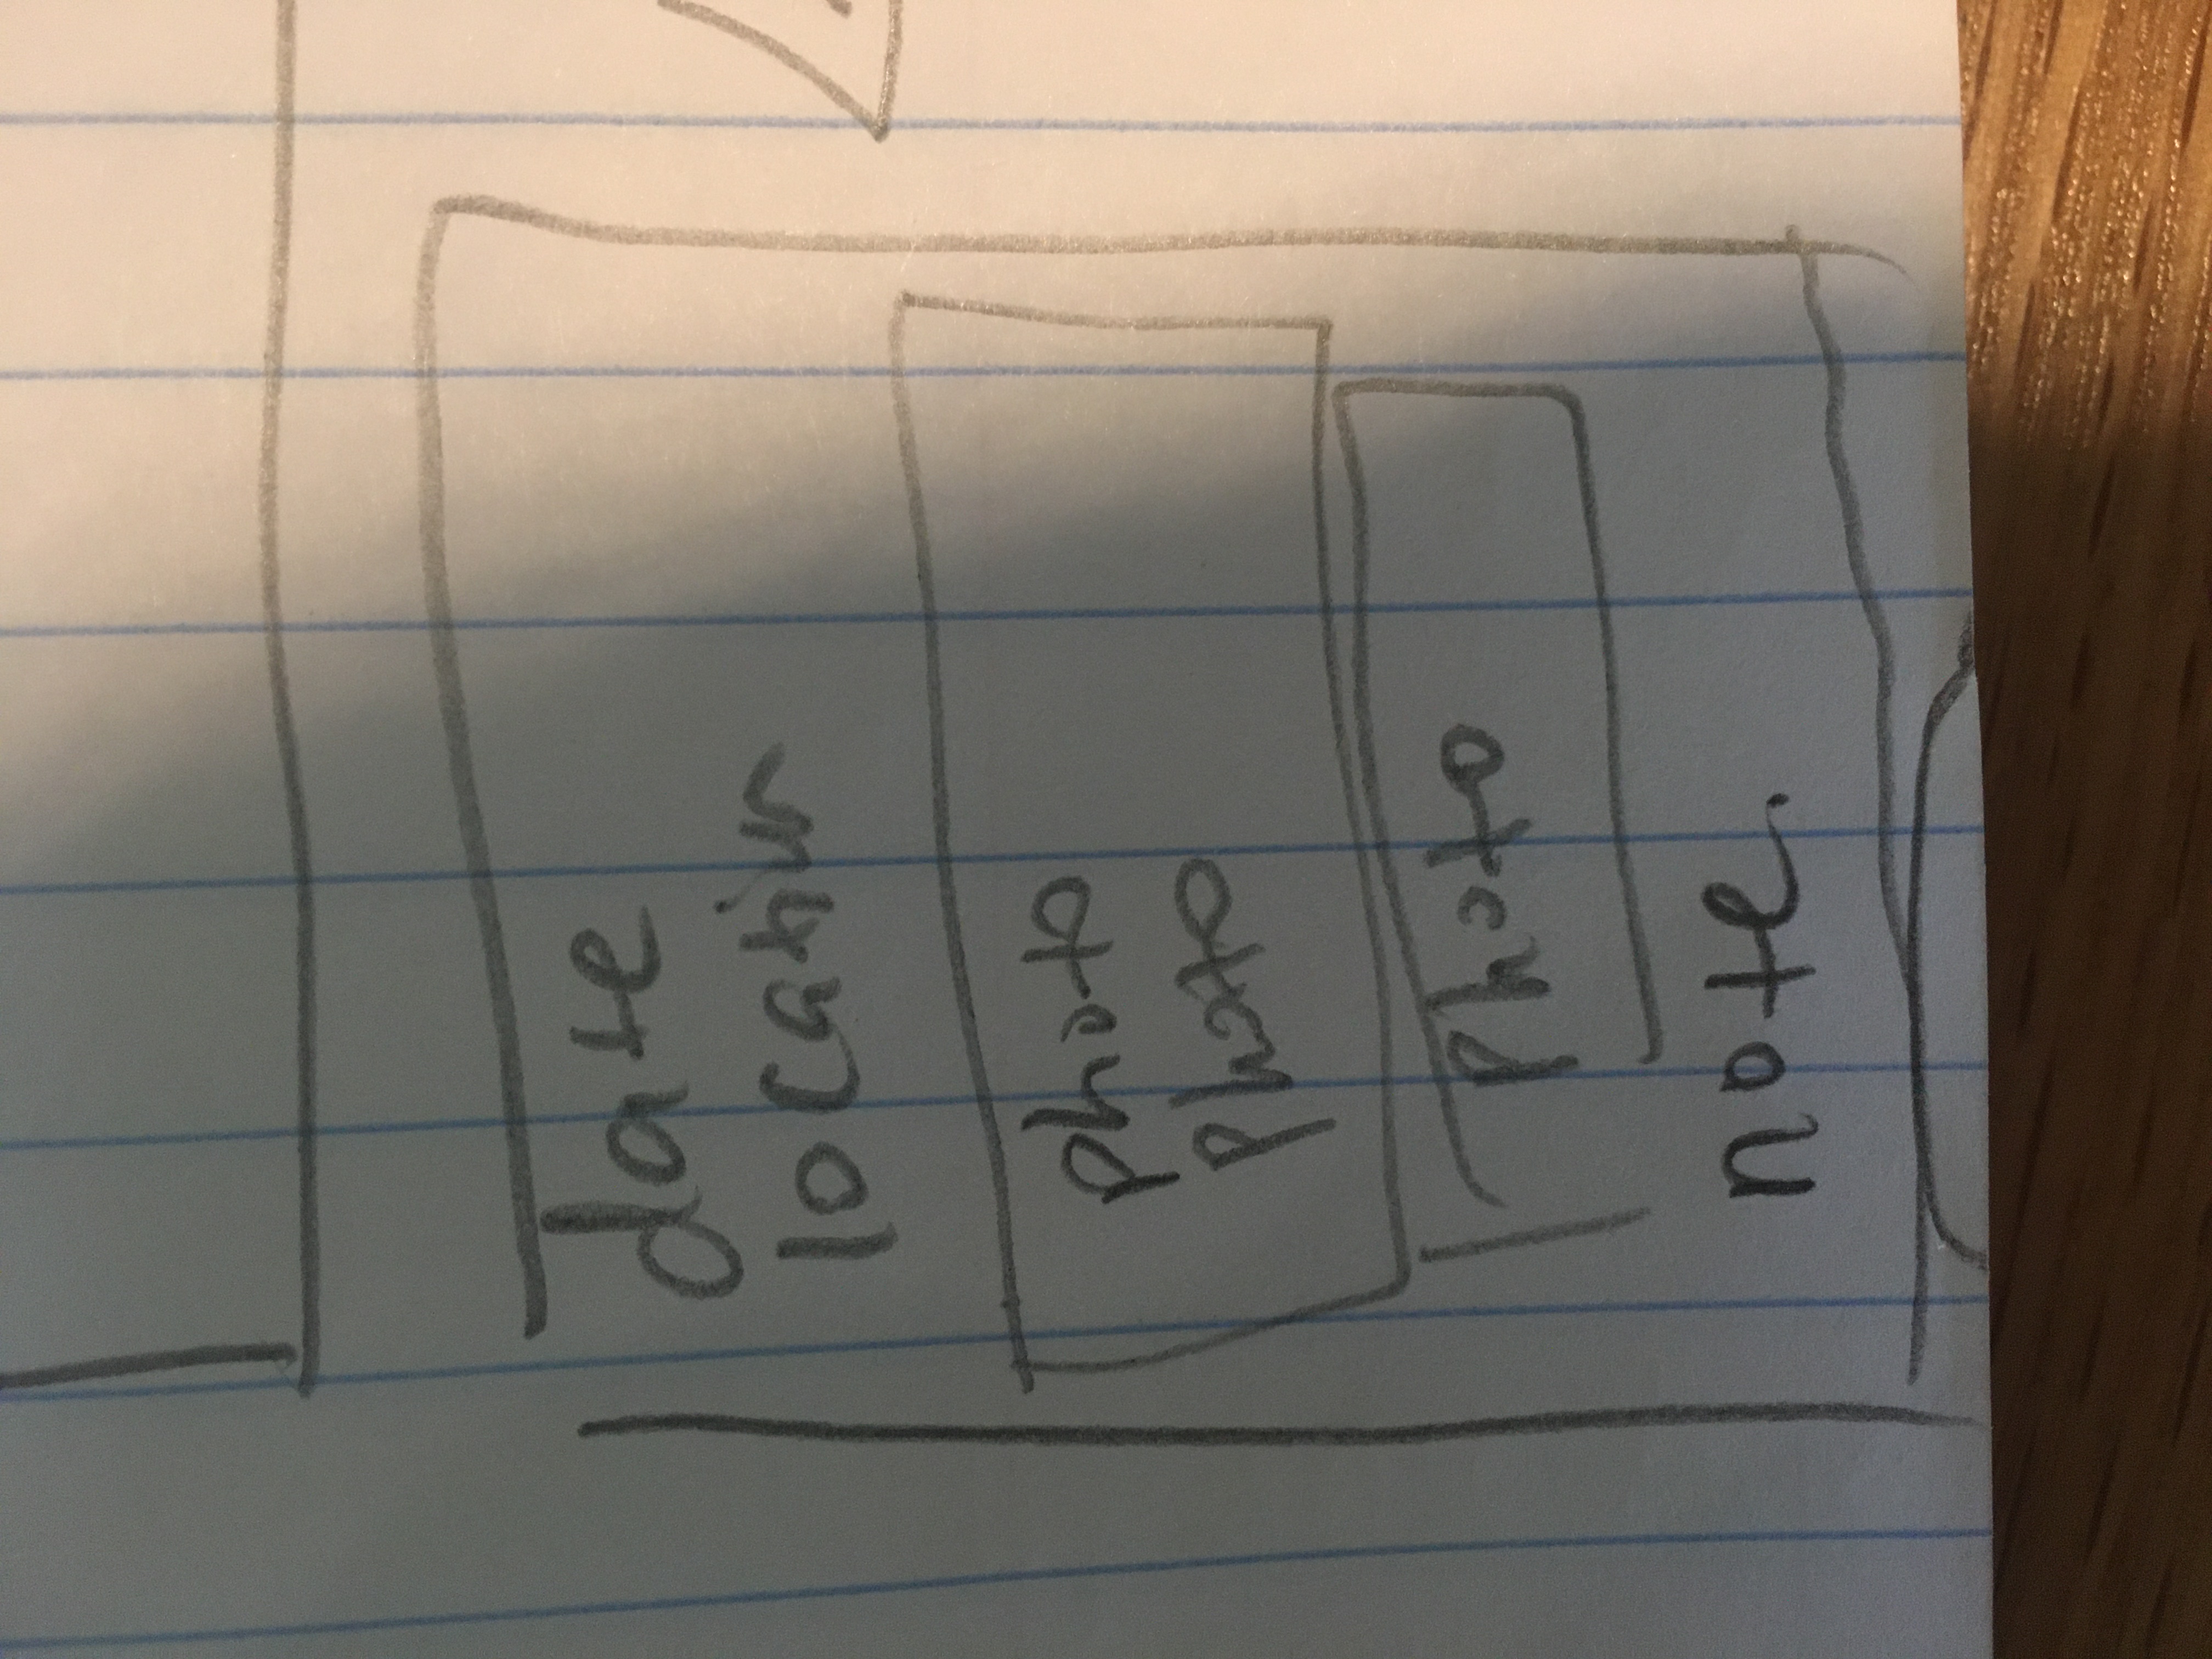 date
location
photo
photo
photo
note.